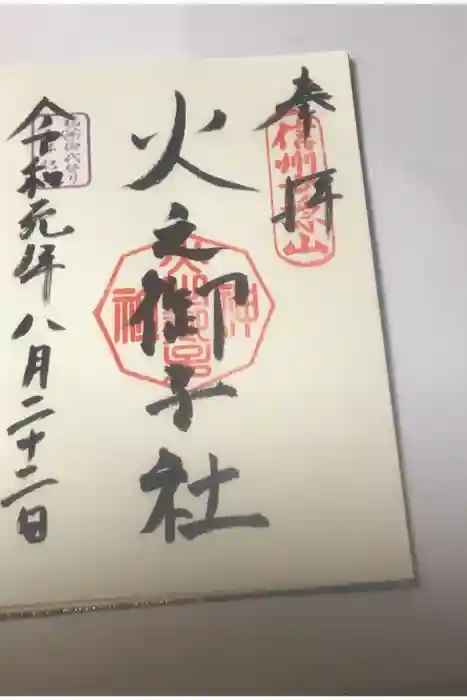 奉拝
信州戸隠山
火之御子社
令和元年八月二十二日
祝 御代替り